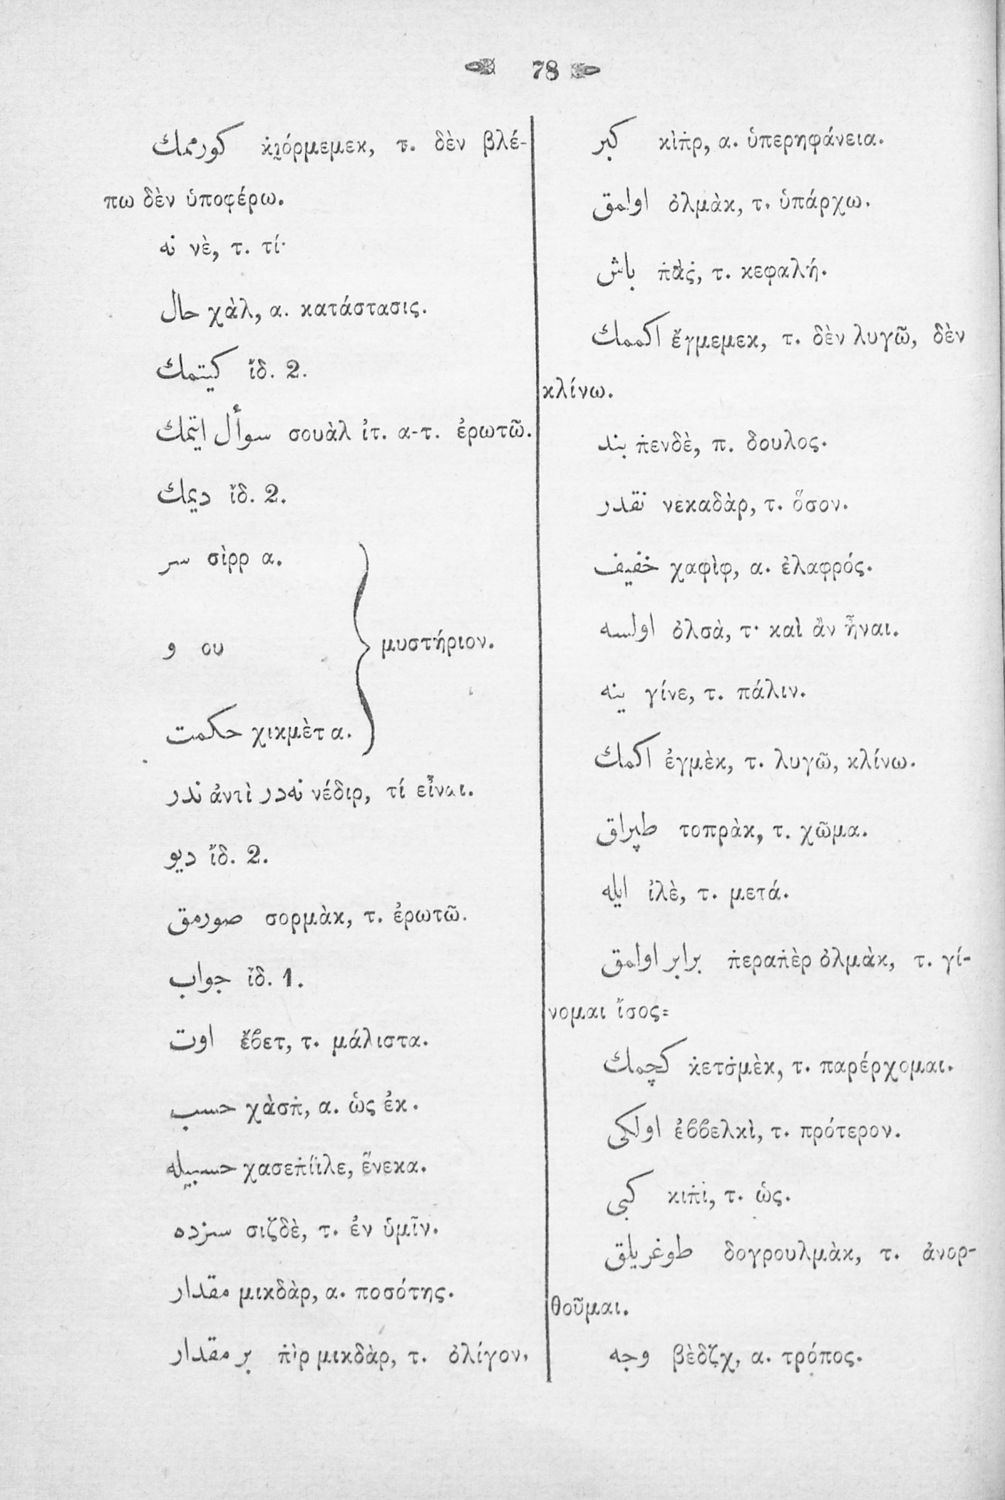 78
كورممك κιόρμεμεκ, τ. δὲν βλέ-
πω δὲν ὑποφέρω.
نه νὲ, τ. τί·
حال χὰλ, α. κατάστασις.
كيتمك ἴδ. 2.
سوأل ايتمك σουὰλ ἰτ. α-τ. ἐρωτῶ.
ديمك ἴδ. 2.
سر σὶρρ α.
و ου } μυστήριον.
حكمت χικμὲτ α.
ندر ἀντὶ نه در νέδιρ, τί εἶναι.
ديو ἴδ. 2.
صورمق σορμὰκ, τ. ἐρωτῶ.
جواب ἴδ. 1.
اوت ἔβετ, τ. μάλιστα.
حسب χὰσπ̇, α. ὡς ἐκ.
حسبيله χασεπ̇ίϊλε, ἕνεκα.
سزده σιζδὲ, τ. ἐν ὑμῖν.
مقدار μικδὰρ, α. ποσότης.
بر مقدار π̇ὶρ μικδὰρ, τ. ὀλίγον.
كبر κὶπ̇ρ, α. ὑπερηφάνεια.
اولمق ὀλμὰκ, τ. ὑπάρχω.
باش π̇ὰς̇, τ. κεφαλή.
اكممك ἔγμεμεκ, τ. δὲν λυγῶ, δὲν
κλίνω.
بند π̇ενδὲ, π. δουλος.
نقدر νεκαδὰρ, τ. ὅσον.
خفيف χαφὶφ, α. ἐλαφρός.
اولسه ὀλσὰ, τ· καὶ ἂν ἦναι.
ينه γίνε, τ. πάλιν.
اكمك ἐγμὲκ, τ. λυγῶ, κλίνω.
طپراق τοπρὰκ, τ. χῶμα.
ايله ἰλὲ, τ. μετά.
برابر اولمق π̇εραπ̇ὲρ ὀλμὰκ, τ. γί-
νομαι ἴσος:
كچمك κ̇ετσ̇μὲκ, τ. παρέρχομαι.
اولكى ἐββελκὶ, τ. πρότερον.
كبى κιπ̇ὶ, τ. ὡς.
طوغريلق δογρουλμὰκ, τ. ἀνορ-
θοῦμαι.
وجه βὲδζχ, α. τρόπος.